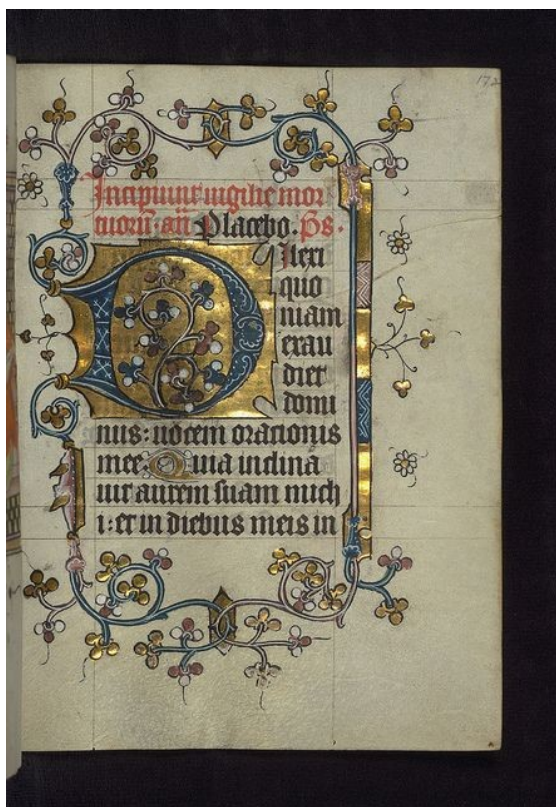 172
Incipiunt uigilie mor
tuorũ. añ Placebo. Ps.
Dilexi
quo
niam
exau
diet
domi
nus: uocem orationis
mee. Quia inclina
uit aurem suam mich
i: et in diebus meis in